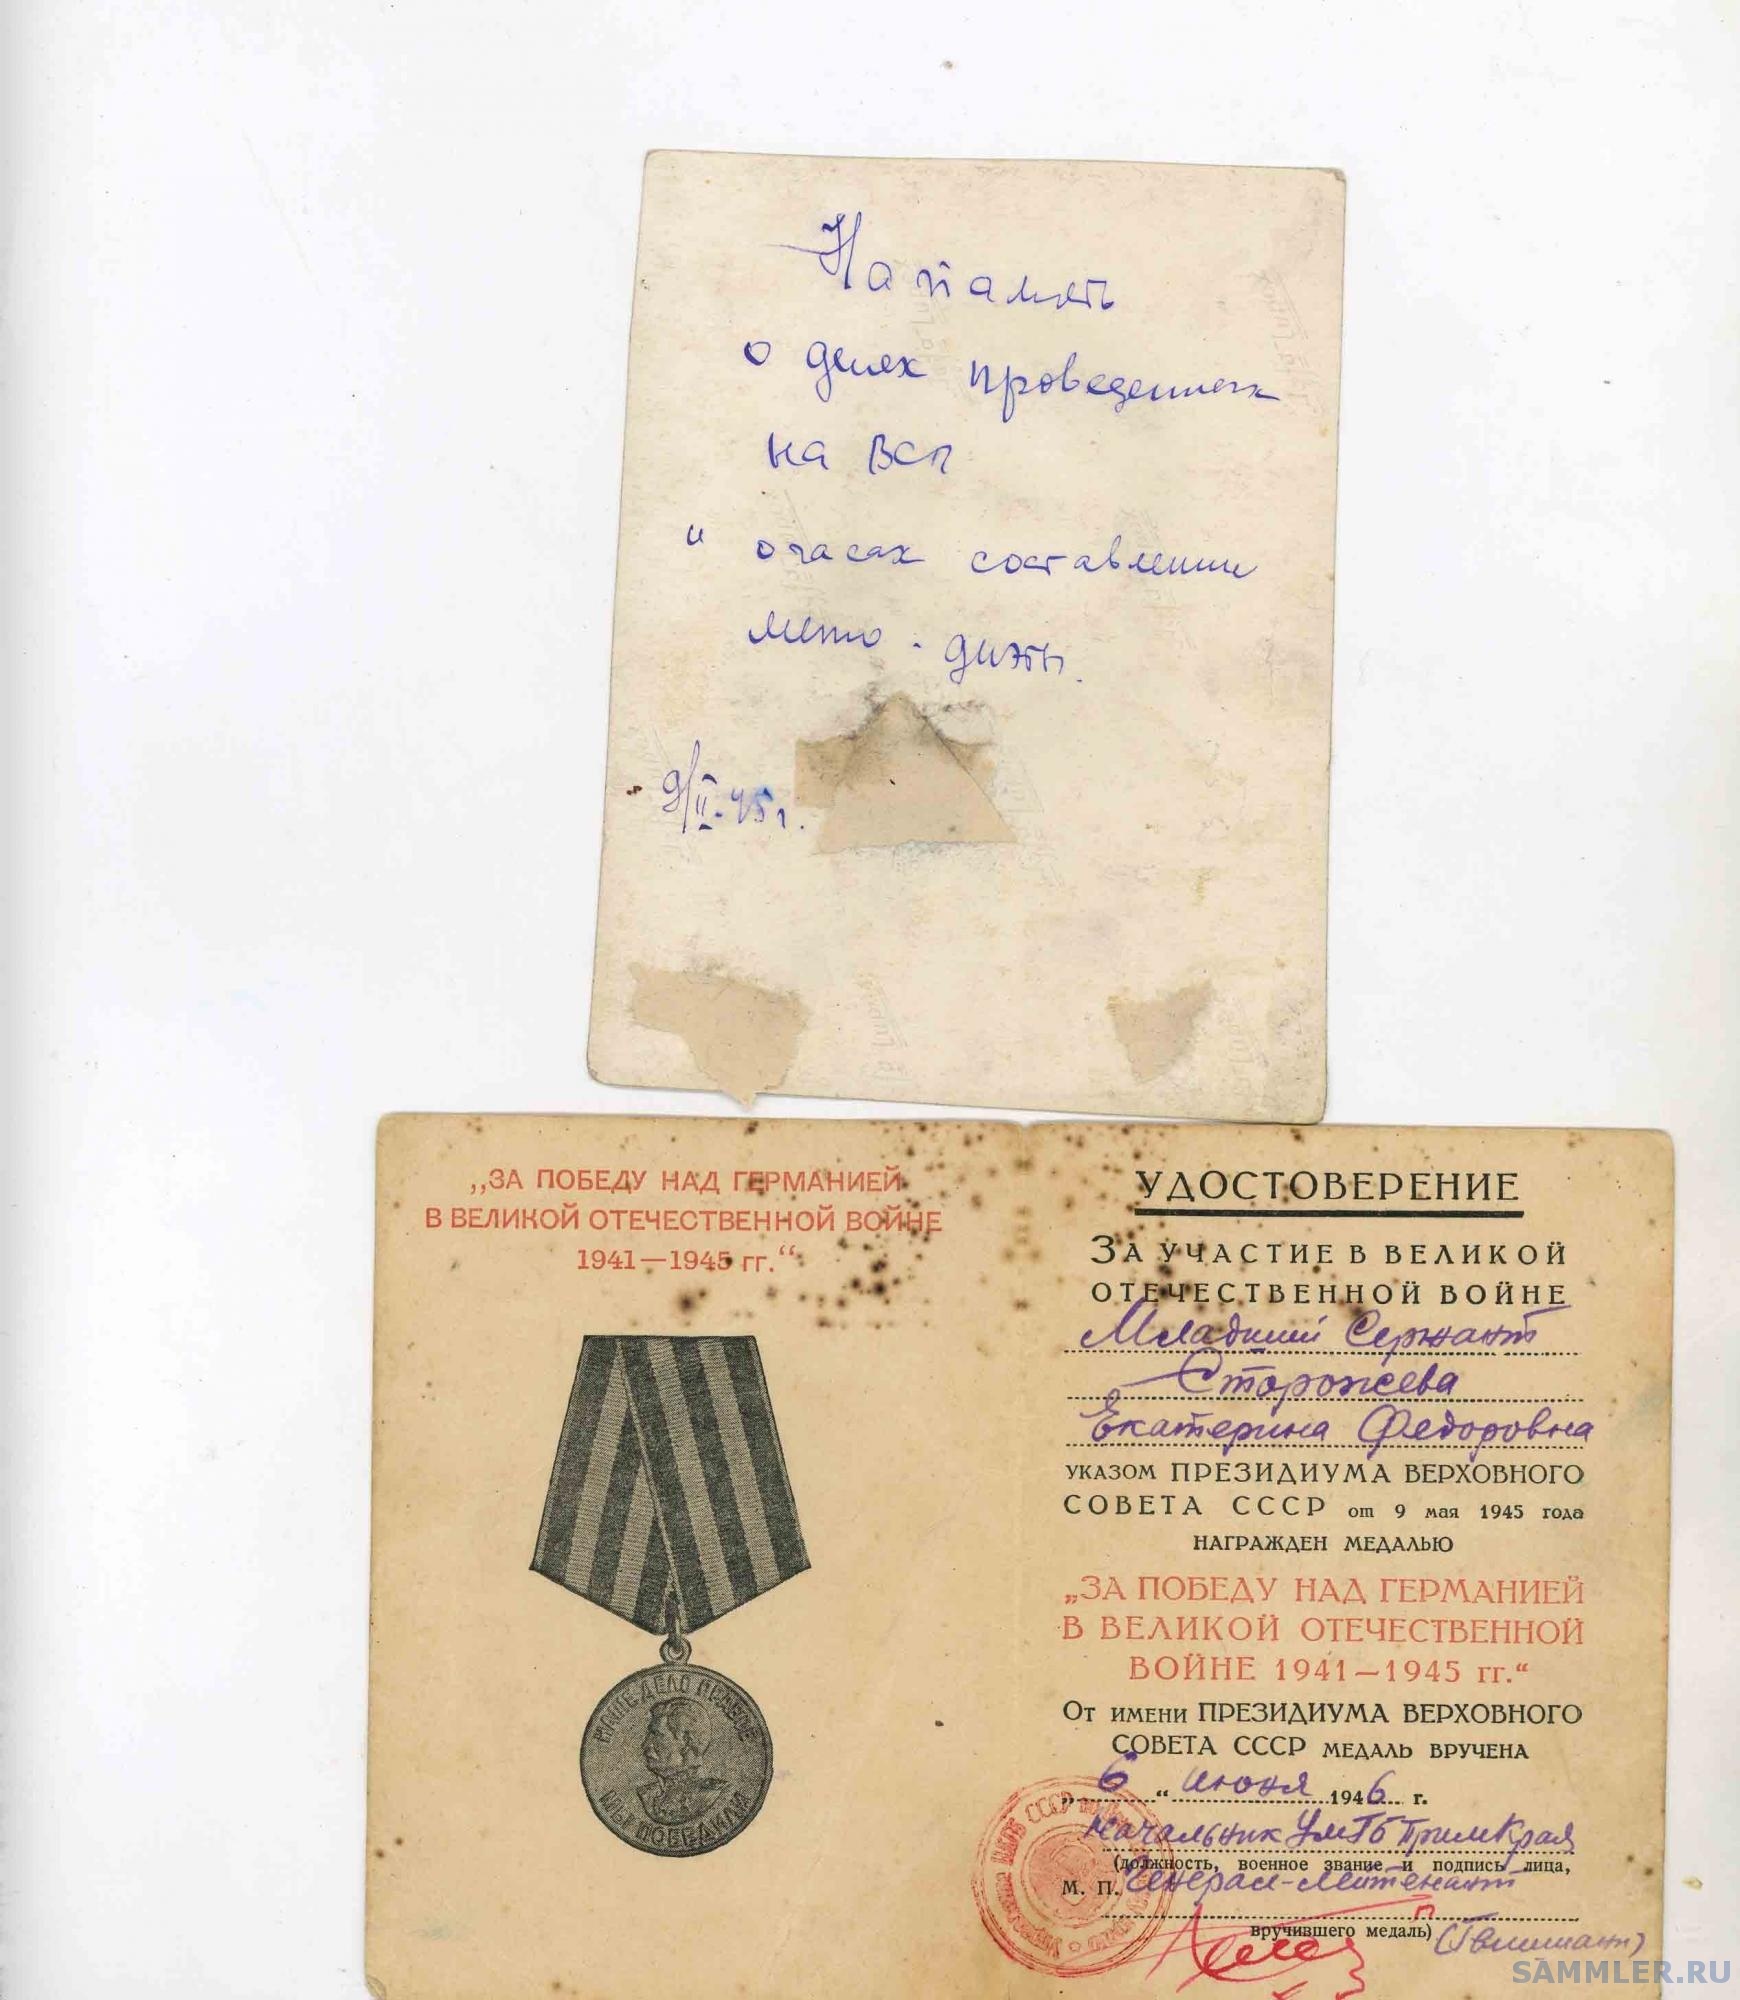 На память
о днях проведенных
на ВСП
и о часах составлении
мето. диэты.
9/II-45 г.
„ЗА ПОБЕДУ НАД ГЕРМАНИЕЙ
В ВЕЛИКОЙ ОТЕЧЕСТВЕННОЙ ВОЙНЕ
1941—1945 гг.“
НАШЕ ДЕЛО ПРАВОЕ
МЫ ПОБЕДИЛИ
УДОСТОВЕРЕНИЕ
ЗА УЧАСТИЕ В ВЕЛИКОЙ
ОТЕЧЕСТВЕННОЙ ВОЙНЕ
Младший Сержант
Сторожева
Екатерина Федоровна
УКАЗОМ ПРЕЗИДИУМА ВЕРХОВНОГО
СОВЕТА СССР от 9 мая 1945 года
НАГРАЖДЕН МЕДАЛЬЮ
„ЗА ПОБЕДУ НАД ГЕРМАНИЕЙ
В ВЕЛИКОЙ ОТЕЧЕСТВЕННОЙ
ВОЙНЕ 1941—1945 гг.“
От имени ПРЕЗИДИУМА ВЕРХОВНОГО
СОВЕТА СССР МЕДАЛЬ ВРУЧЕНА
„6“ июня 1946 г.
Начальник УМГБ ПримКрая
(должность, военное звание и подпись лица,
М. П. Генерал-лейтенант
вручившего медаль)
SAMMLER.RU